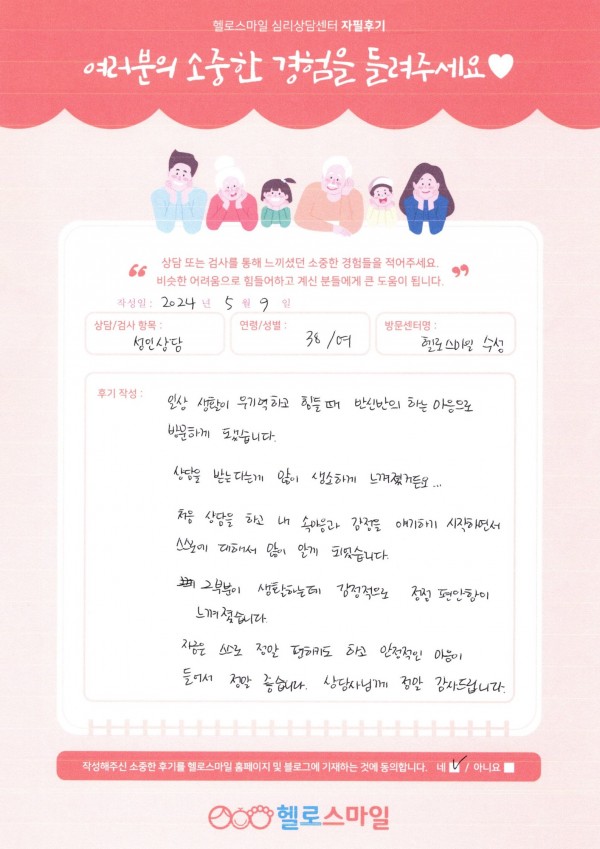 헬로스마일 심리상담센터 자필후기
여러분의 소중한 경험을 들려주세요♥
“ 상담 또는 검사를 통해 느끼셨던 소중한 경험들을 적어주세요.
비슷한 어려움으로 힘들어하고 계신 분들에게 큰 도움이 됩니다. ”
작성일 : 2024 년 5 월 9 일
상담/검사 항목 : 성인상담
연령/성별 : 38/여
방문센터명 : 헬로스마일 수성
후기 작성 :
일상 생활이 무기력하고 힘들때 반신반의 하는 마음으로
방문하게 되었습니다.
상담을 받는다는게 많이 생소하게 느껴졌거든요...
처음 상담을 하고 내 속마음과 감정을 얘기하기 시작하면서
스스로에 대해서 많이 알게 되었습니다.
그부분이 생활하는데 감정적으로 점점 편안함이
느껴졌습니다.
지금은 스스로 정말 편하기도 하고 안정적인 마음이
들어서 정말 좋습니다. 상담사님께 정말 감사드립니다.
작성해주신 소중한 후기를 헬로스마일 홈페이지 및 블로그에 기재하는 것에 동의합니다. 네 ✓ / 아니요
헬로스마일